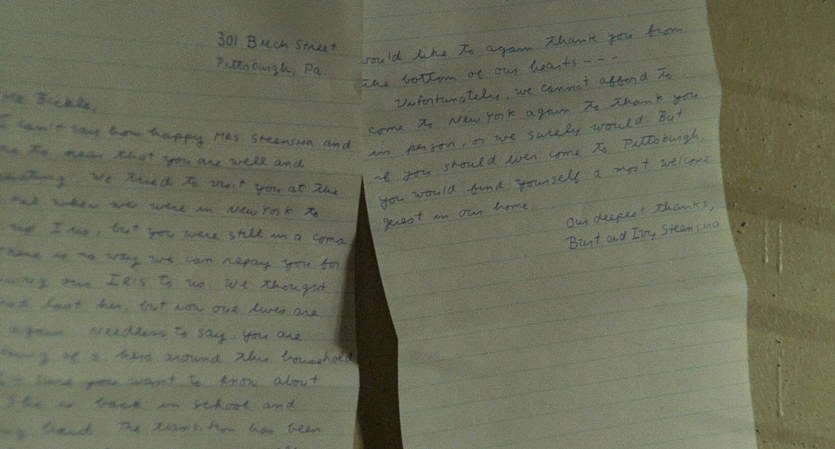 301 Birch Street
Pittsburgh, Pa.
Mr Bickle,
I can't say how happy Mrs Steensma and
me to hear that you are well and
We tried to visit you at the
when we were in New York to
up Iris, but you were still in a coma
There is no way we can repay you for
our Iris to us. We thought
lost her, but now our lives are
again. Needless to say, you are
of a hero around this household
sure you want to know about
She is back in school and
hard. The transition has been
would like to again thank you from
the bottom of our hearts - - -
Unfortunately, we cannot afford to
come to New York again to thank you
in person, or we surely would. But
if you should ever come to Pittsburgh,
you would find yourself a most welcome
guest in our home.
Our deepest thanks,
Burt and Ivy Steensma